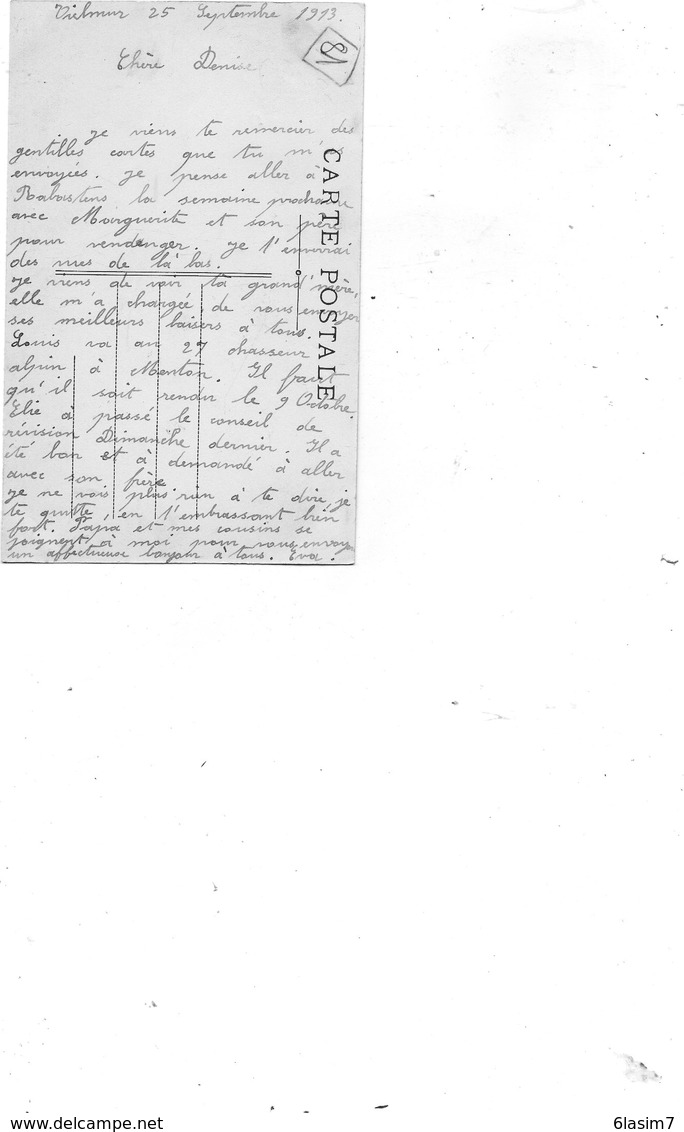 Vielmur 25 Septembre 1913.
81
Chère Denise
Je viens te remercier des
gentilles cartes que tu m'as
envoyées. Je pense aller à
Rabastens la semaine prochaine
avec Marguerite et son père
pour vendenger. Je t'enverrai
des vues de là bas.
Je viens de voir ta grand'mère,
elle m'a chargée de vous envoyer
ses meilleurs baisers à tous.
Louis va au 27 chasseur
alpin à Menton. Il faut
qu'il soit rendu le 9 Octobre.
Elie à passé le conseil de
révision Dimanche dernier. Il a
été bon et à demandé à aller
avec son frère
Je ne vois plus rien à te dire, je
te quitte en t'embrassant bien
fort. Papa et mes cousins se
joignent à moi pour vous envoyer
un affectueuse bonjour à tous. Eva.
CARTE POSTALE
6lasim7